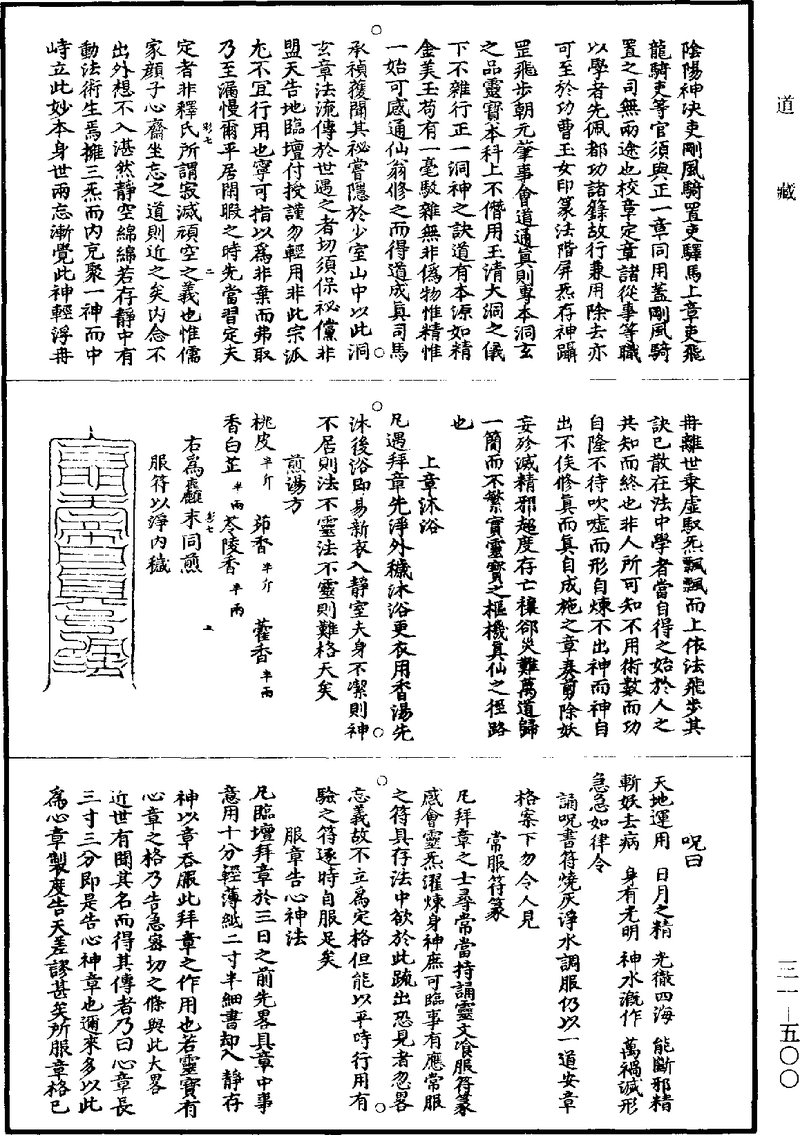 道藏
陰陽神决吏剛風騎置吏驛馬上章吏飛
龍騎吏等官須與正一章同用蓋剛風騎
置之司無兩途也校章定章諸從事等職
以學者先佩都功諸籙故行兼用除去亦
可至於功曹玉女印篆法階屏炁存神躡
罡飛步朝元肇事會道通眞則專本洞玄
之品靈寶本科上不僭用玉清大洞之儀
下不雜行正一洞神之訣道有本源如精
金美玉苟有一毫駁雜無非僞物惟精惟
一始可感通仙翁修之而得道成眞司馬
承禎獲聞其祕嘗隱於少室山中以此洞
玄章法流傳於世遇之者切須保祕儻非
盟天告地臨壇付授謹勿輕用非此宗派
尤不宜行用也寧可指以爲非棄而弗取
乃至漏慢爾平居閒暇之時先當習定夫
定者非釋氏所謂寂滅頑空之義也惟儒
家顔子心齋坐忘之道則近之矣内念不
出外想不入湛然靜空綿綿若存靜中有
動法術生焉擁三炁而内充聚一神而中
峙立此妙本身世兩忘漸覺此神輕浮冉
冉離世乘虛馭炁飄飄而上依法飛步其
訣已散在法中學者當自得之始於人之
共知而終也非人所可知不用術數而功
自隆不待吹噓而形自煉不出神而神自
出不俟修眞而眞自成施之章奏剪除妖
妄殄滅精邪超度存亡禳郤災難萬道歸
一簡而不繁實靈寶之樞機眞仙之徑路
也
上章沐浴
凡遇拜章先淨外穢沐浴更衣用香湯先
沐後浴即易新衣入靜室夫身不潔則神
不居則法不靈法不靈則難格天矣
煎湯方
桃皮半斤　茆香半斤　藿香半兩
香白芷半兩　苓陵香半兩
右爲麤末同煎
服符以淨内穢
呪曰
天地運用　日月之精　光徹四海　能斷邪精
斬妖去病　身有光明　神水漑作　萬禍滅形
急急如律令
誦呪書符燒灰淨水調服仍以一道安章
格案下勿令人見
常服符篆
凡拜章之士尋常當持誦靈文飡服符篆
感會靈炁濯煉身神庶可臨事有應常服
之符具存法中欲於此疏出恐見者忽畧
忘義故不立爲定格但能以平時行用有
驗之符逐時自服足矣
服章告心神法
凡臨壇拜章於三日之前先畧具章中事
意用十分輕薄紙二寸半細書却入靜存
神以章吞服此拜章之作用也若靈寶有
心章之格乃告急密切之條與此大畧
近世有聞其名而得其傳者乃曰心章長
三寸三分即是告心神章也邇來多以此
爲心章製度告天差謬甚矣所服章格已
三一—五〇〇